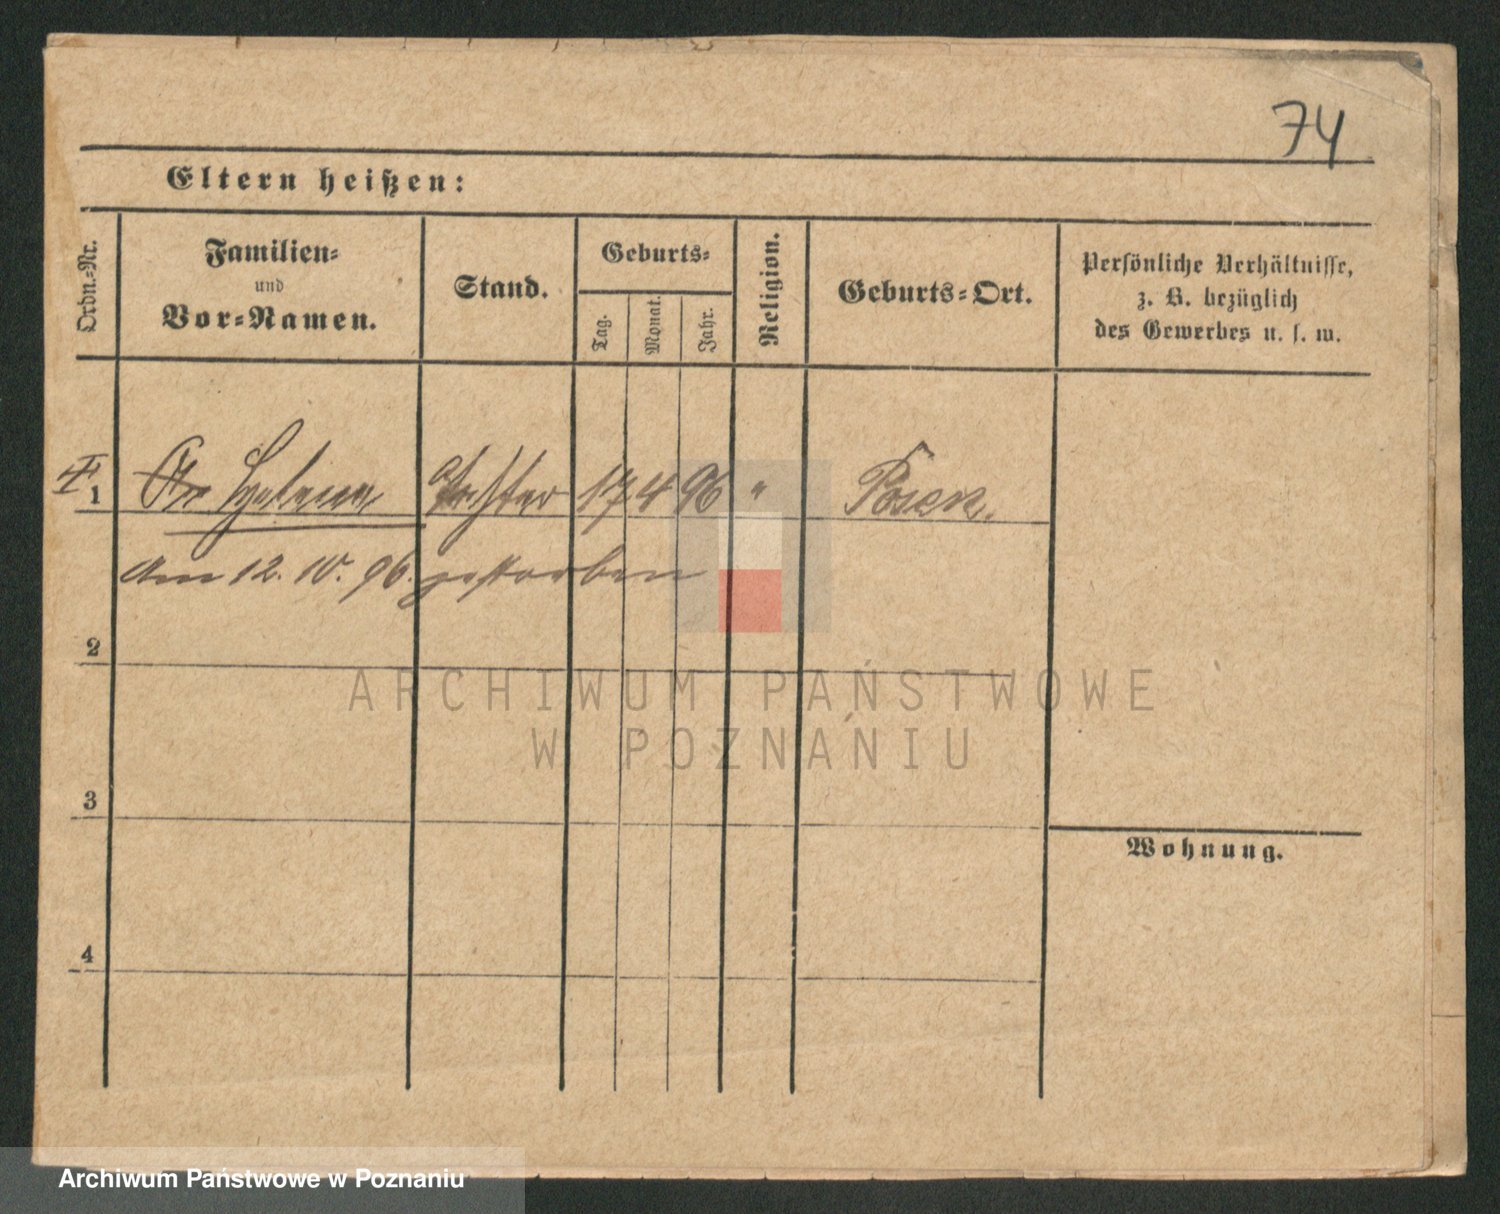 74
Eltern heißen:
Ordn.-Nr.
Familien-
und
Vor-Namen.
Stand.
Geburts-
Tag.
Monat.
Jahr.
Religion.
Geburts-Ort.
Persönliche Verhältnisse,
z. B. bezüglich
des Gewerbes u. s. w.
1 Helena Tochter 17 4 96 " Posen.
am 12. 10. 96. gestorben
2
ARCHIWUM PAŃSTWOWE
W POZNANIU
3
Wohnung.
4
Archiwum Państwowe w Poznaniu